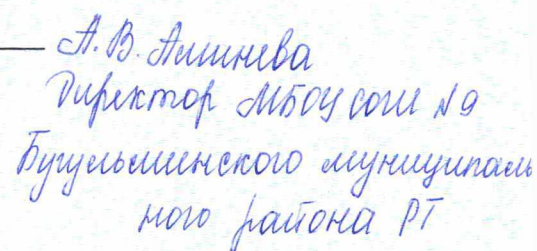 А.В. Аминева
Директор МБОУ СОШ №9
Бугульминского муниципаль
ного района РТ